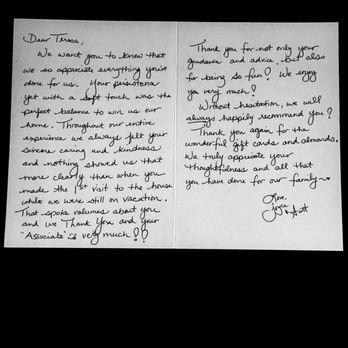 Dear Teresa,
We want you to know that
we so appreciate everything you've
done for us. Your persistence
yet with a soft touch was the
perfect balance to win us our
home. Throughout our entire
experience we always felt your
sincere caring and kindness
and nothing showed us that
more clearly than when you
made the 1st visit to the house
while we were still on vacation.
That spoke volumes about you
and we Thank You and your
"Associates" so very much!
Thank you for not only your
guidance and advice, but also
for being so fun! We enjoy
you very much!
Without hesitation, we will
always happily recommend you!
Thank you again for the
wonderful gift cards and almonds.
We truly appreciate your
thoughtfulness and all that
you have done for our family
Love,
Joyce